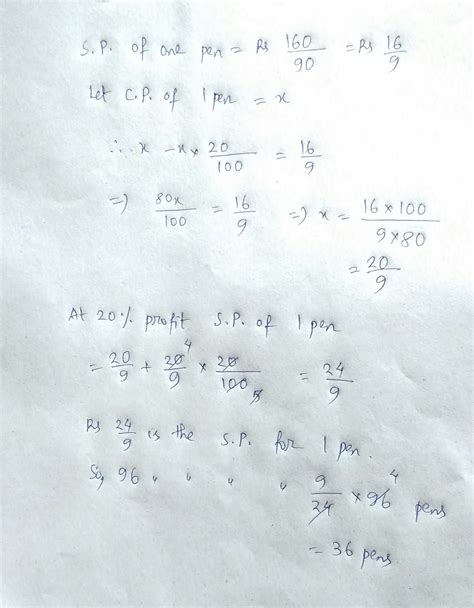 S.P. of one pen = Rs 160/90 = Rs 16/9
Let C.P. of 1 pen = x
∴ x - x × 20/100 = 16/9
=) 80x/100 = 16/9 =) x = 16 × 100/9 × 80
= 20/9
At 20% profit S.P. of 1 pen
= 20/9 + 20 4/9 × 20/100 5 = 24/9
Rs 24/9 is the S.P. for 1 pen.
So, 96 " " " " 9/24 × 96 4 pens
= 36 pens